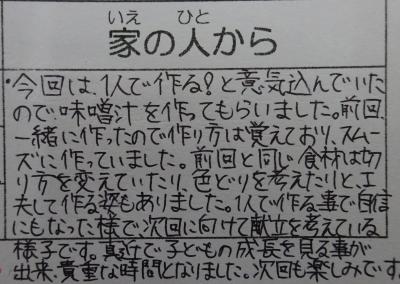 いえ ひと
家の人から
・今回は、1人で作る!と意気込んでいた
ので味噌汁を作ってもらいました。前回、
一緒に作ったので作り方は覚えており、スムー
ズに作っていました。前回と同じ食材は切
り方を変えていたり、色どりを考えたりと、工
夫して作る姿もありました。1人で作る事で自信
にもなった様で、次回に向けて献立を考えている
様子です。真近で子どもの成長を見る事が
出来、貴重な時間となりました。次回も楽しみです。